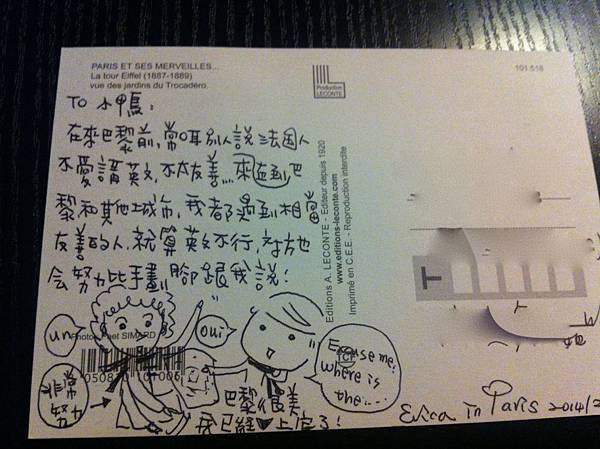 PARIS ET SES MERVEILLES...
La tour Eiffel (1887-1889)
vue des jardins du Trocadéro.
Production
LECONTE
101.518
TO 小鴨：
在來巴黎前，常听別人說法国人
不愛講英文，不太友善…來逛到巴
黎和其他城市，我都遇到相當
友善的人，就算英文不行，对方也
会努力比手畫腳跟我說！
Editions A. LECONTE - Editeur depuis 1920
www.editions-leconte.com
Imprimé en C.E.E. - Reproduction interdite
un
oui
Excuse me,
where is
the...
SIMARD
非常
努力
巴黎很美
我已經♥上它了！
Erica in Paris 2014/2